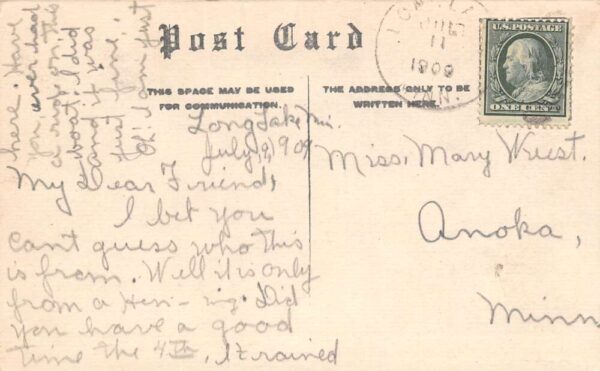 Post Card
THIS SPACE MAY BE USED
FOR COMMUNICATION.
THE ADDRESS ONLY TO BE
WRITTEN HERE.
U.S. POSTAGE
ONE CENT
JUL
11
1909
MINN.
Long Lake Min.
July (9) 9 09
My Dear Friend,
I bet you
can't guess who this
is from. Well it is only
from a Hen - ing. Did
you have a good
time the 4th, it rained
here. Have
you ever had
a ride on this
boat. I did
and it was
just fine.
Oh! I am just
Miss. Mary Wuest.
Anoka,
Minn